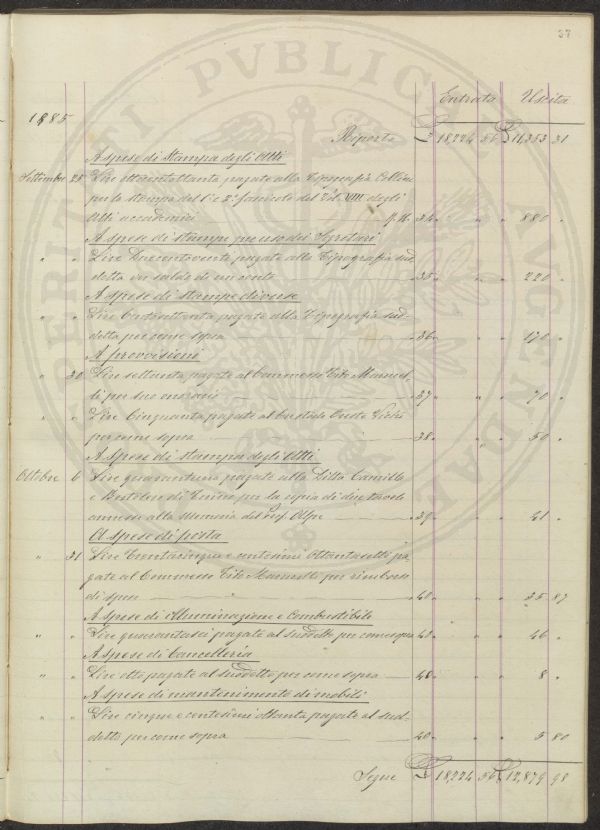 37
Entrata Uscita
1885
Riporto £ 18,224 56 £ 11,353 31
A spese di Stampa degli Atti
Settembre 25 Lire ottocentottanta, pagate alla Tipografia
per la stampa del 1° e 2° fascicolo del Vol. VIII degli
Atti accademici 34 " " 880 "
A spese di stampe per uso dei Segretari
" " Lire Duecentoventi, pagate alla Tipografia sud-
detta in saldo di un conto 35 " " 220 "
A spese di stampe diverse
" " Lire Centosettanta pagate alla Tipografia sud-
detta per come sopra 36 " " 170 "
A provvisioni
" 30 Lire settanta, pagate al Commesso Tito
per suo onorario 37 " " 70 "
" " Lire Cinquanta, pagate al Custode
per come sopra 38 " " 50 "
A spese di stampa degli Atti
Ottobre 6 Lire quarantuna pagate alla Ditta
e Bertolero di Torino per la copia di due tavole
annesse alla Memoria del Prof. 39 " " 41 "
A spese di posta
" 31 Lire Trentacinque e centesimi Ottantasette pa-
gate al Commesso Tito per rimborso
di spese 40 " " 35 87
A spese di Illuminazione e Combustibile
" " Lire quarantasei pagate al suddetto per come sopra " " 46 "
A spese di Cancelleria
" " Lire otto pagate al suddetto per come sopra " " 8 "
A spese di mantenimento di mobili
" " Lire cinque e centesimi ottanta pagate al sud-
detto per come sopra 40 " " 5 80
Segue £ 18,224 56 £ 12,879 98